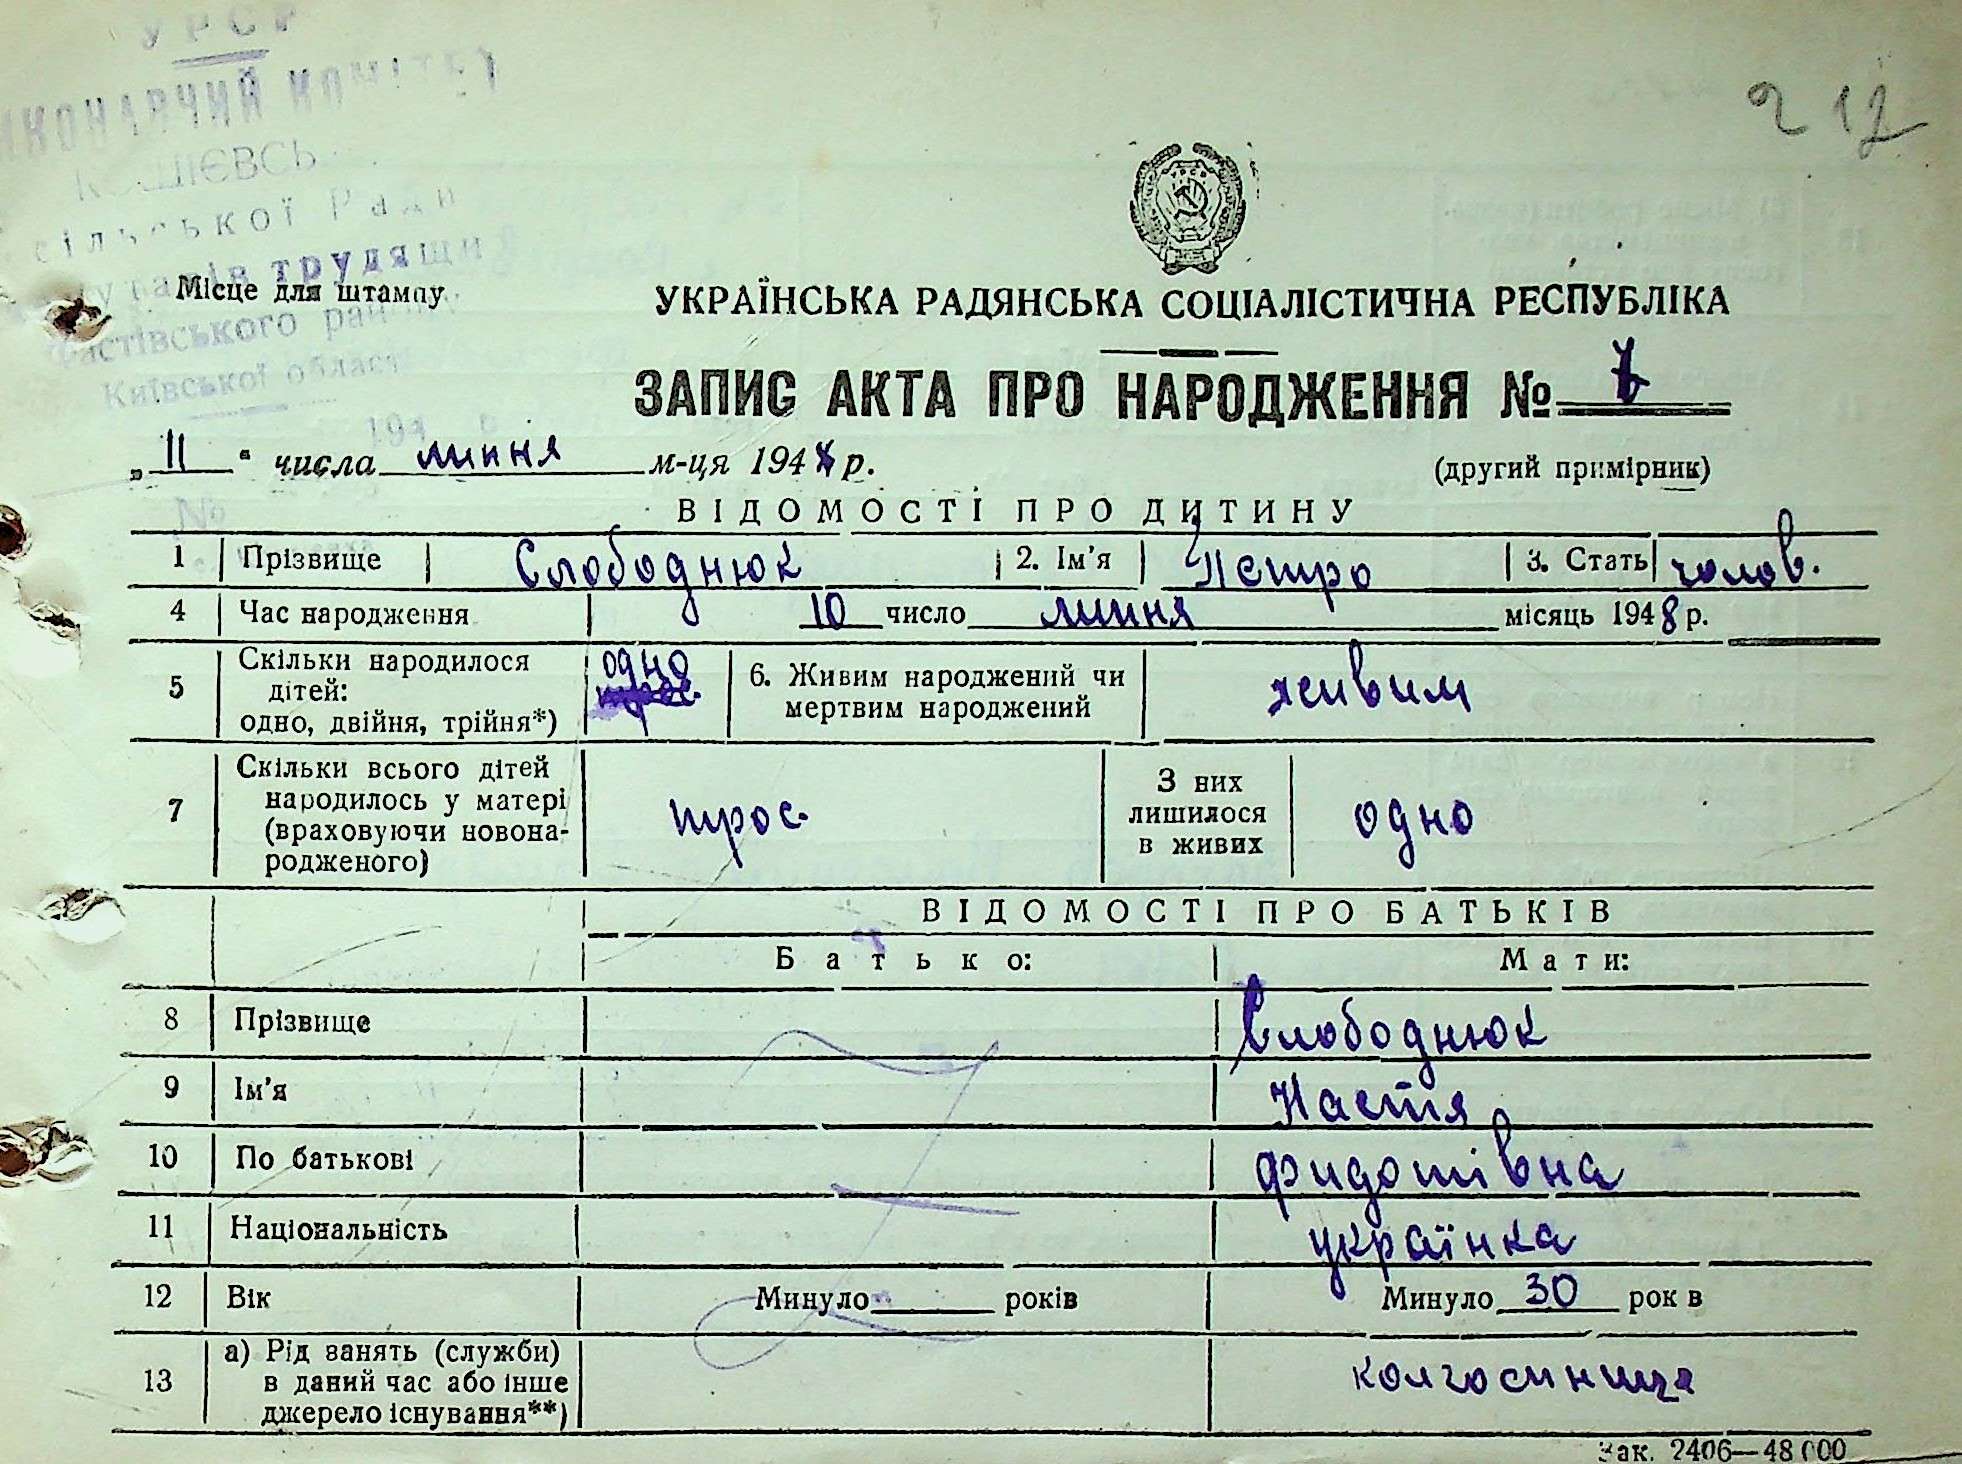 УРСР
КОМІТЕТ
сільської Ради
трудящи
Фастівського району
Київської області
212
Місце для штампу
УКРАЇНСЬКА РАДЯНСЬКА СОЦІАЛІСТИЧНА РЕСПУБЛІКА
ЗАПИС АКТА ПРО НАРОДЖЕННЯ №
„ 11 “ числа липня м-ця 1948 р.
(другий примірник)
№
ВІДОМОСТІ ПРО ДИТИНУ
1 Прізвище Слободнюк 2. Ім'я Петро 3. Стать чолов.
4 Час народження 10 число липня місяць 1948 р.
5 Скільки народилося дітей: одно, двійня, трійня*) одно 6. Живим народжений чи мертвим народжений живим
7 Скільки всього дітей народилось у матері (враховуючи новонародженого) троє З них лишилося в живих одно
ВІДОМОСТІ ПРО БАТЬКІВ
Батько: Мати:
8 Прізвище Слободнюк
9 Ім'я Настя
10 По батькові Фидотівна
11 Національність українка
12 Вік Минуло років Минуло 30 рок в
13 а) Рід занять (служби) в даний час або інше джерело існування**) колгоспниця
Зак. 2406—48 000